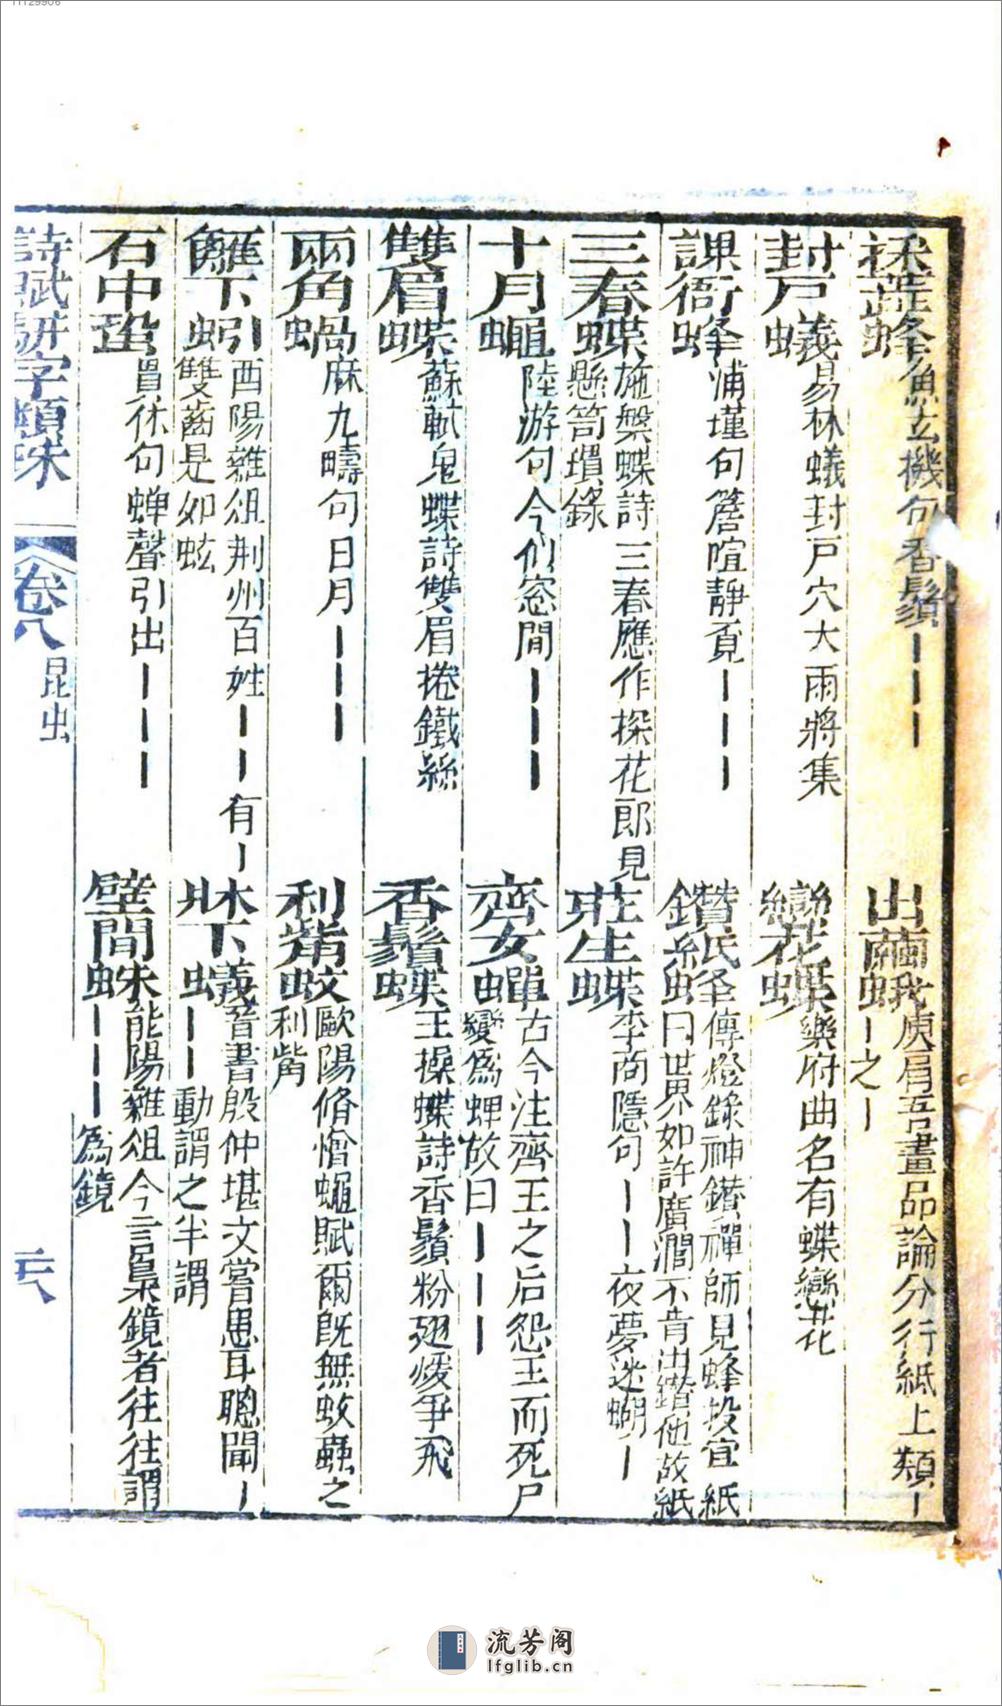 採蕋蜂魚玄機句香鬚｜｜｜
出繭蛾庾肩吾書品論分行紙上類｜
｜之｜
封戸蟻易林蟻封戸穴大雨將集
戀花蝶樂府曲名有蝶戀花
課衙蜂浦瑾句簷喧靜覔｜｜｜
鑽紙蜂傳燈錄神鑚禪師見蜂投宜紙
曰世界如許廣濶不肯出鑚他故紙
三春蝶施槃蝶詩三春應作探花郎見
懸笥瑣錄
莊生蝶李商隱句｜｜夜夢迷蝴｜
十月蠅陸游句今似窓間｜｜｜
齊女蟬古今注齊王之后怨王而死尸
變為蟬故曰｜｜｜
雙眉蝶蘇軾鬼蝶詩雙眉捲鐵絲
香鬚蝶王操蝶詩香鬚粉翅煖爭飛
兩角蝸麻九疇句日月｜｜｜
利觜蚊歐陽脩憎蠅賦爾旣無蚊蟲之
利觜
籬下蚓酉陽雜俎荆州百姓｜｜有｜
雙齒是如蚿
牀下蟻晉書殷仲堪父嘗患耳聰聞｜
｜｜動謂之牛鬬
石中蛩貫休句蟬聲引出｜｜｜
壁間蛛酉陽雜俎今言梟鏡者往往謂
｜｜｜為鏡
詩賦駢字類珠
卷八
昆虫
二六
流芳阁
lfglib.cn
11129906